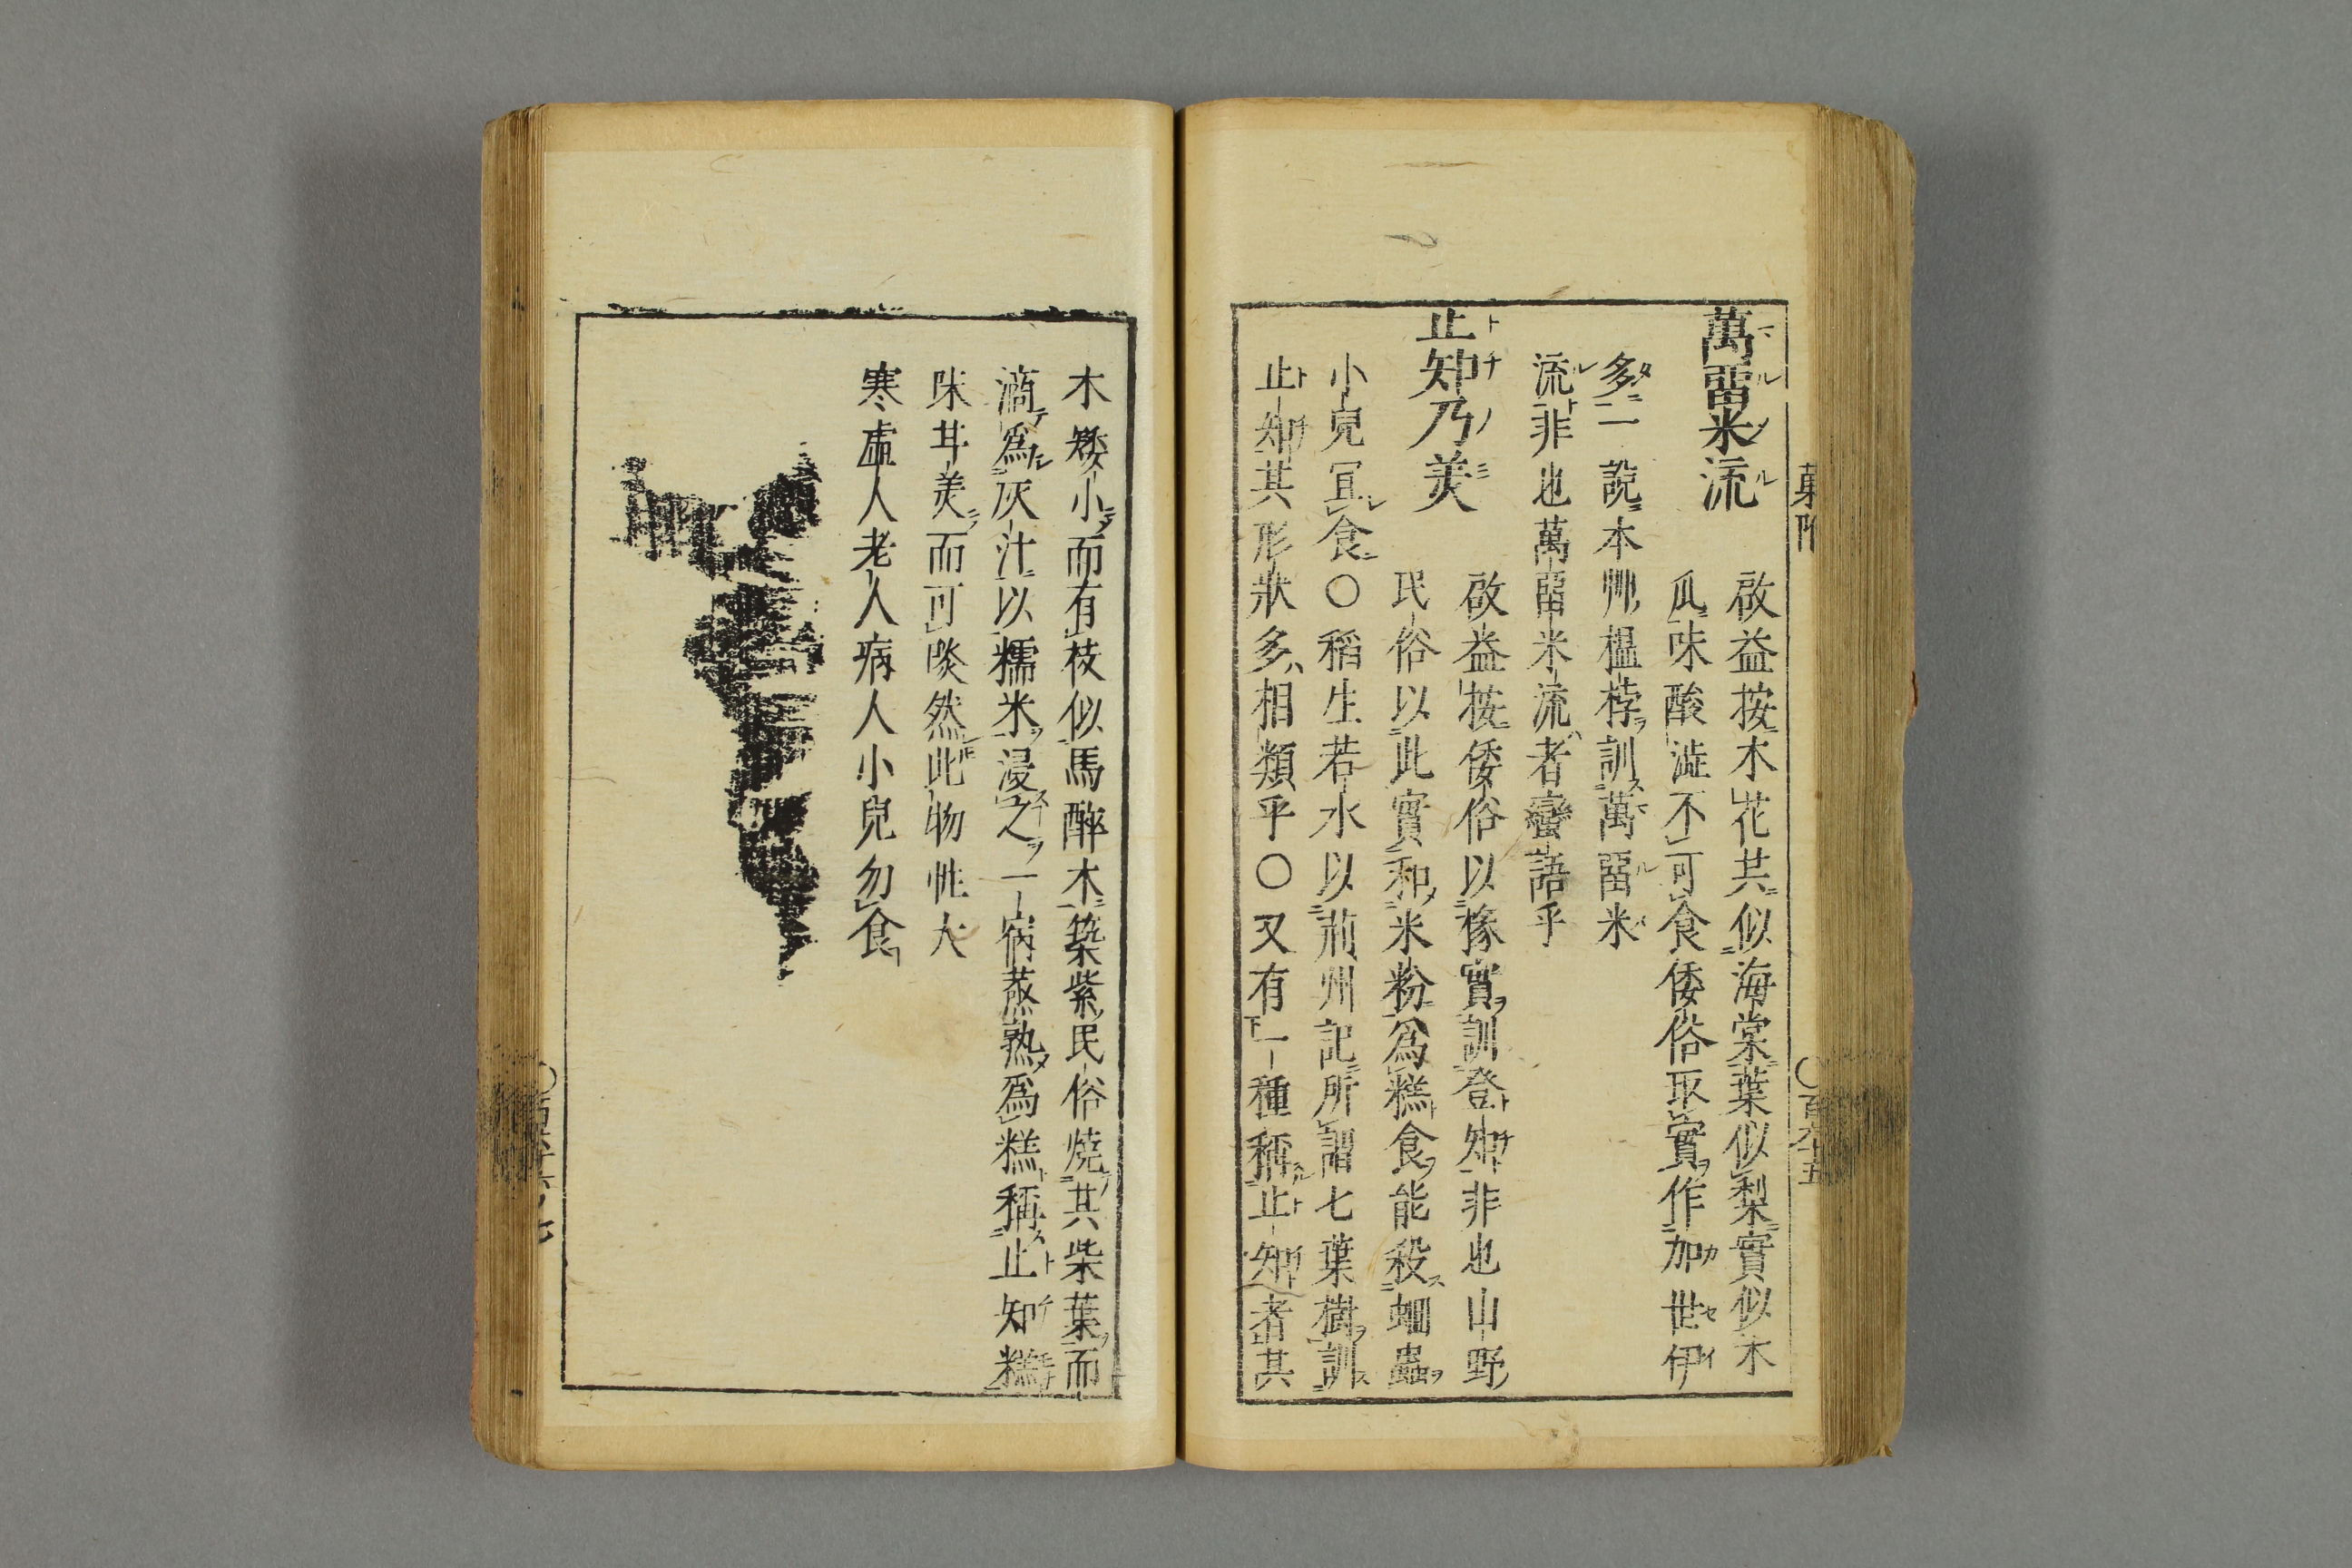 萬畱米流
啟益按木花共似海棠葉似梨實似木
瓜味酸澁不可食倭俗取實作加世伊
多一說本艸榲桲訓萬畱米
流非也萬畱米流者蠻語乎
止知乃美
啟益按倭俗以橡實訓登知非也山野
民俗以此實和米粉爲糕食能殺蛔蟲
小兒冝食○稻生若水以荊州記所謂七葉樹訓
止知其形狀多相類乎○又有一種稱止知者其
木矮小而有枝似馬醉木築紫民俗燒其柴葉而
滴爲灰汁以糯米浸之一宿蒸熟爲糕稱止知糕
味甘美而可啖然此物性大
寒虛人老人病人小兒勿食